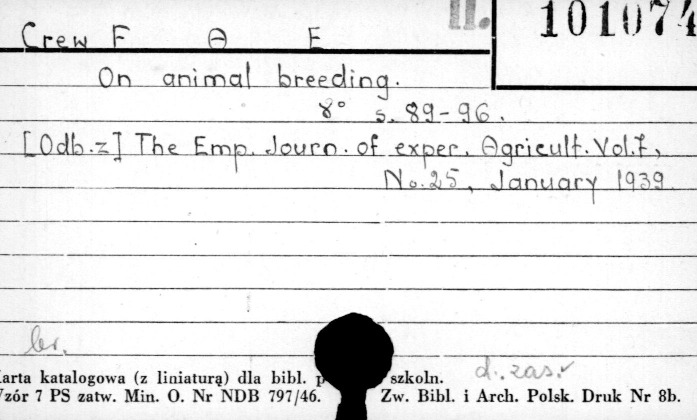 II. 101074
Crew F A E
On animal breeding.
8° s. 89-96.
[Odb.z] The Emp. Journ. of exper. Agricult. Vol.7,
No.25, January 1939.
br.
d. zas.
arta katalogowa (z liniaturą) dla bibl. p szkoln.
zór 7 PS zatw. Min. O. Nr NDB 797/46. Zw. Bibl. i Arch. Polsk. Druk Nr 8b.